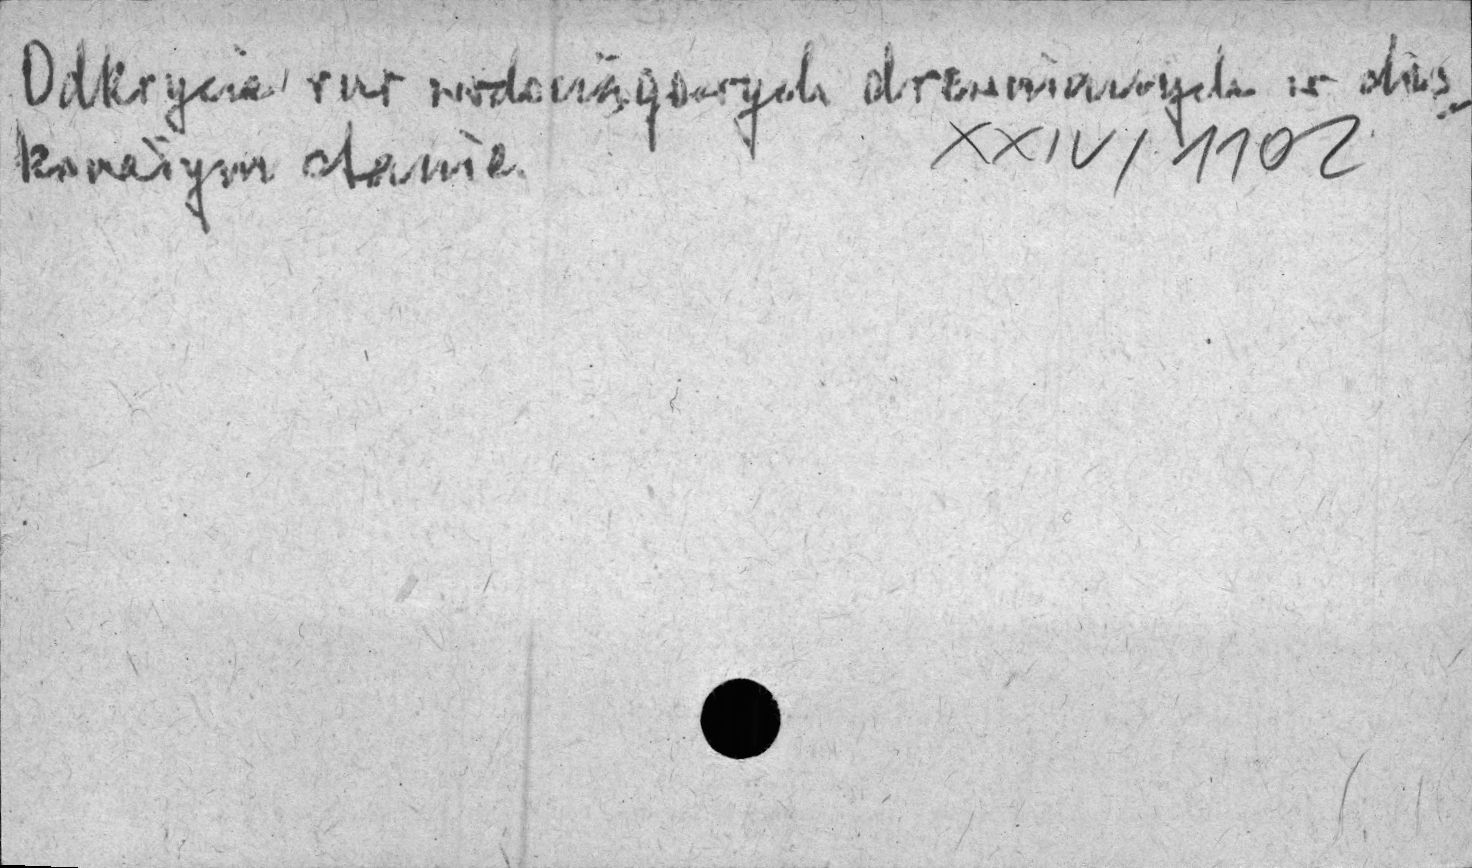 Odkrycie rur wodociągowych drewnianych w dos-
konałym stanie.
XXIV/1102